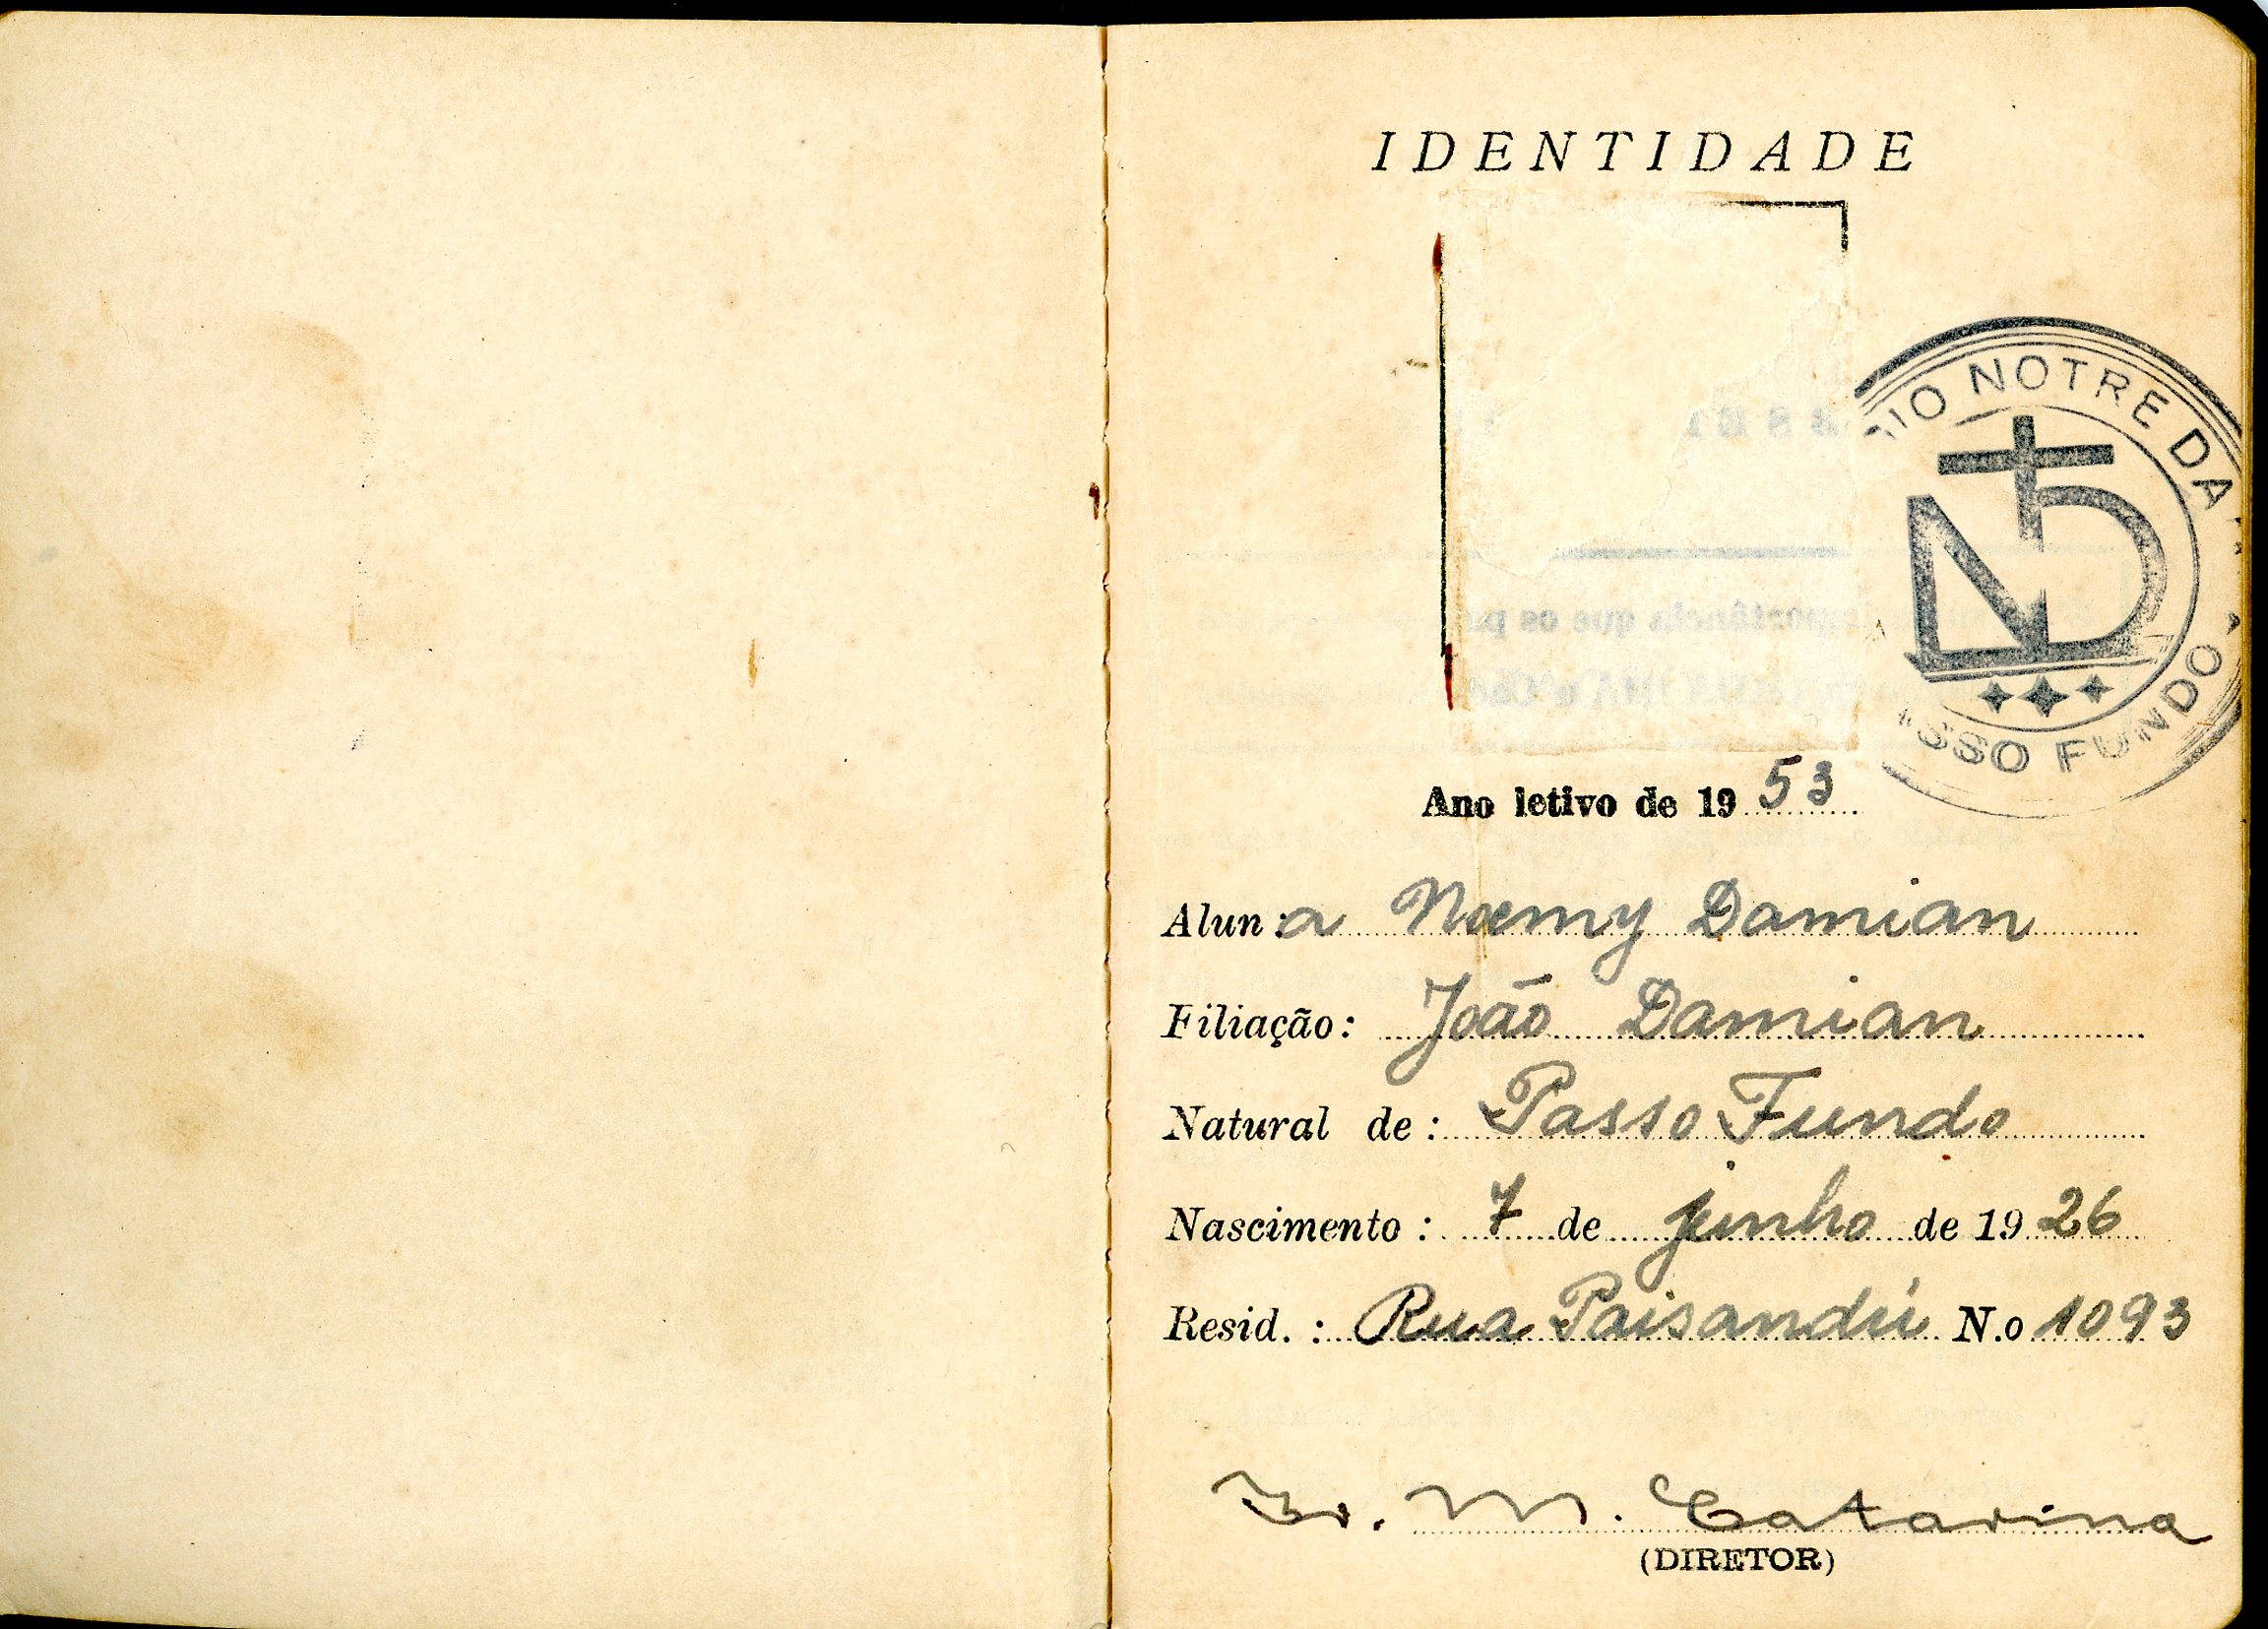 IDENTIDADE
IO NOTRE DA
SSO FUNDO
Ano letivo de 19 53
Alun:a Noemy Damian
Filiação: João Damian
Natural de: Passo Fundo
Nascimento: 7 de junho de 19 26
Resid.: Rua Paisandú N.o 1093
Ir. M. Catarina
(DIRETOR)